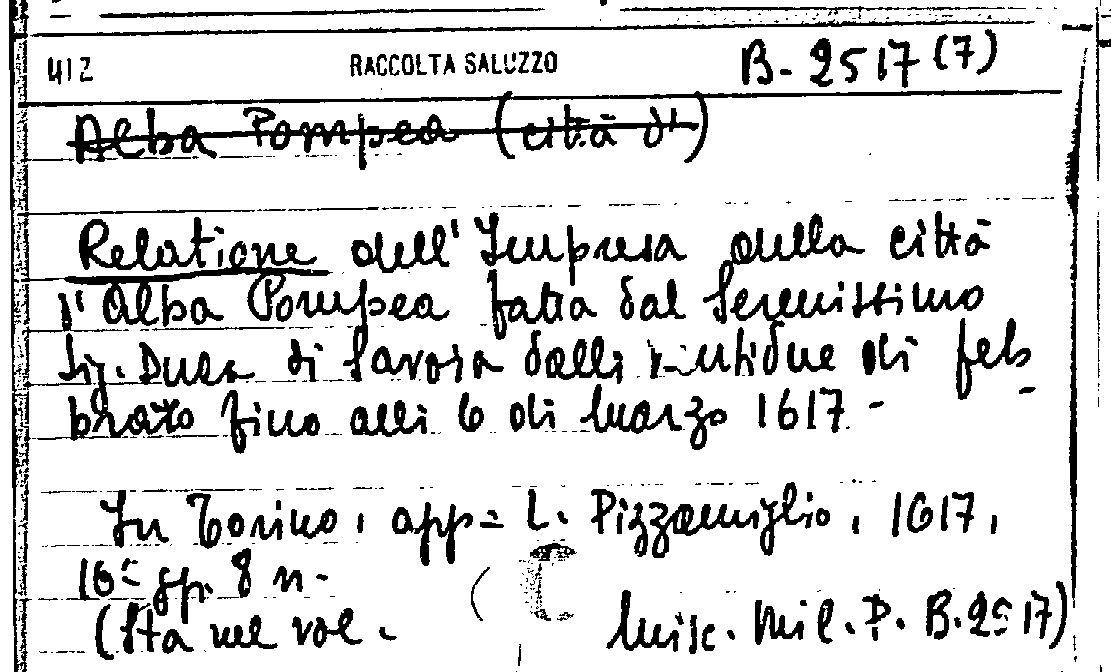 412 RACCOLTA SALUZZO B-2517(7)
Alba Pompea (città d')
Relatione dell'Impresa della città
d'Alba Pompea fatta dal Serenissimo
Sig. Duca di Savoia dalli vintidue di feb
braio fino alli 6 di Marzo 1617-
In Torino, app= L. Pizzamiglio, 1617,
16° gp. 8 n-
( C
(Sta nel vol. Misc. Mil. P. B.2517)